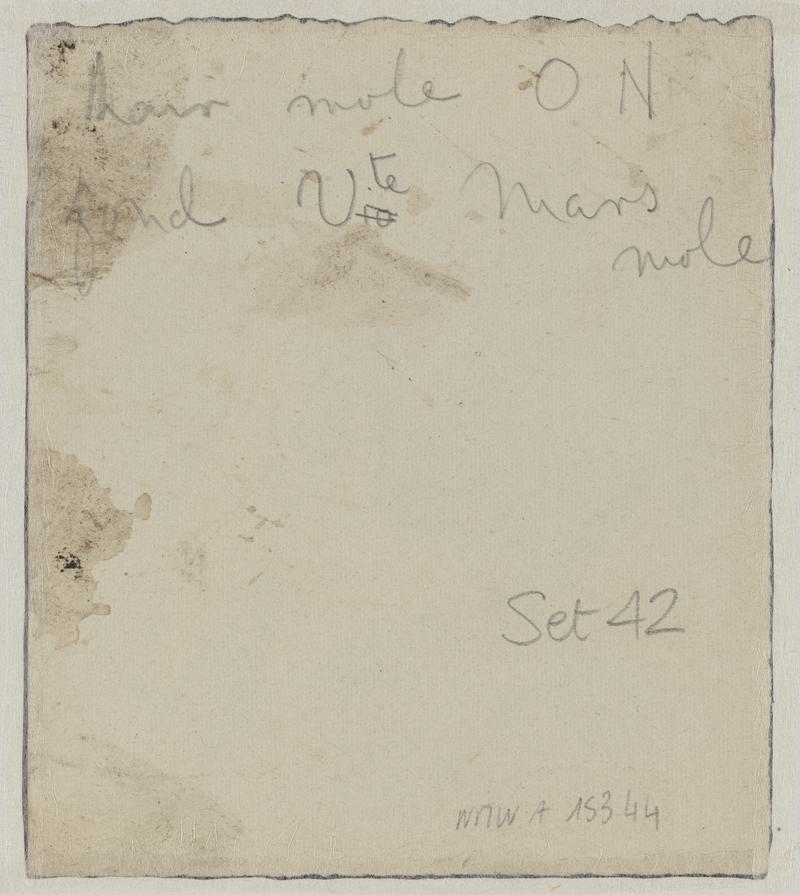 hair mole O N
fond Vte Mars
mole
Set 42
NMW A 15344